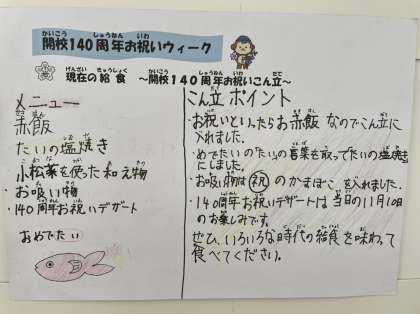 開校140周年お祝いウィーク
現在の給食 ～開校140周年お祝いこん立～
メニュー
赤飯
たいの塩焼き
小松菜を使った和え物
・お吸い物
・140周年お祝いデザート
おめでたい
こん立ポイント
・お祝いといったらお赤飯なのでこん立に
入れました。
・めでたいの「たい」の言葉を取ってたいの塩焼き
にしました。
・お吸い物は祝のかまぼこを入れました。
・140周年お祝いデザートは当日の11月10日
のお楽しみです。
ぜひ、いろいろな時代の給食を味わって
食べてください。